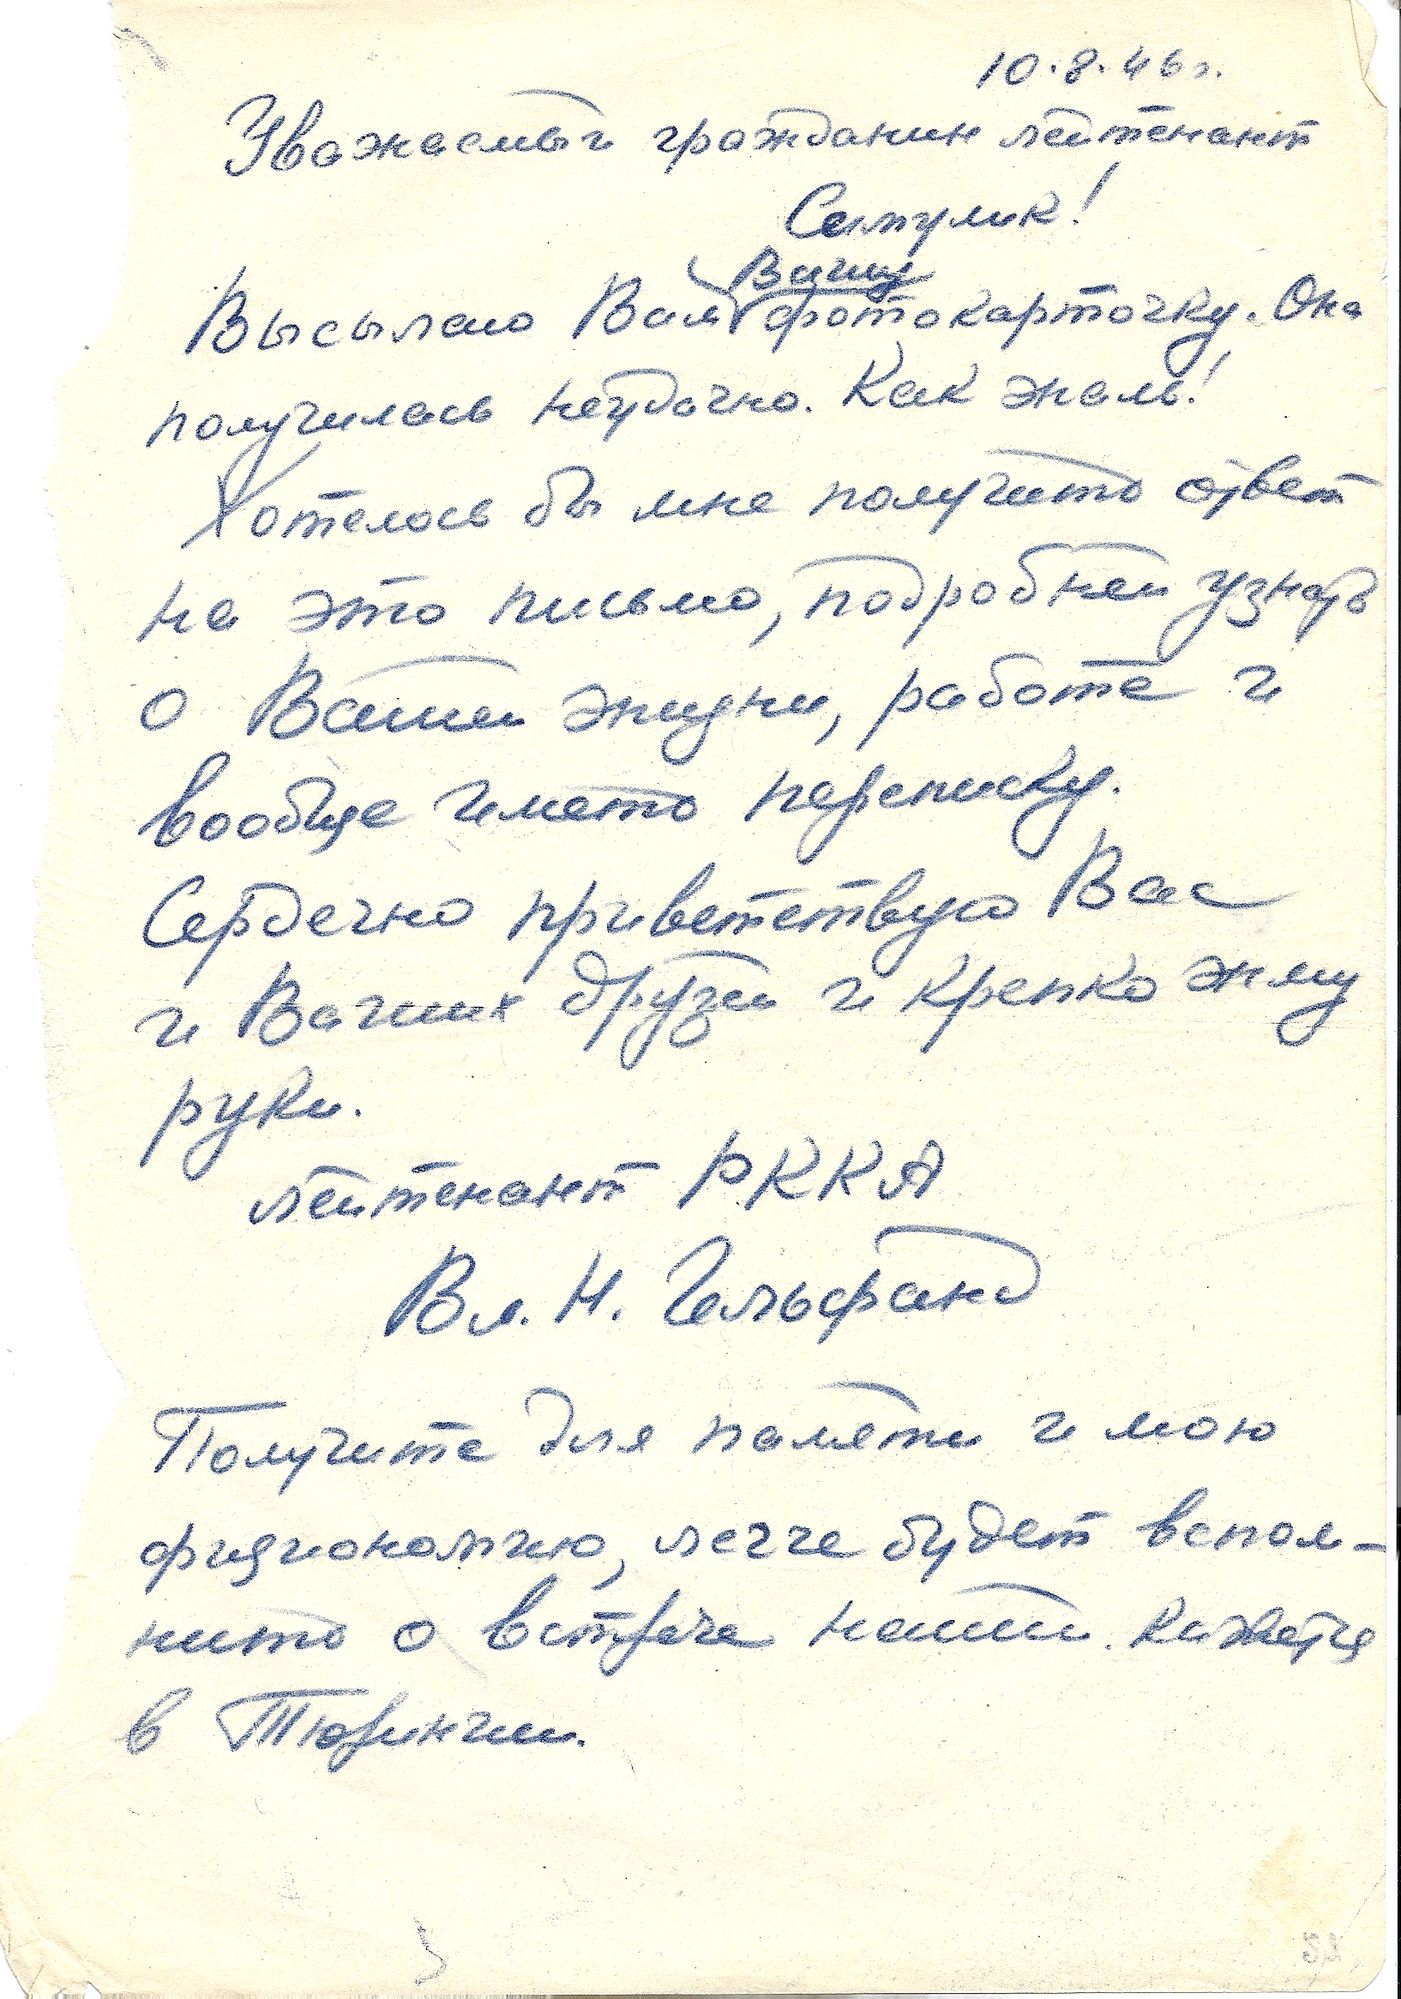 10.8.46г.
Уважаемый гражданин лейтенант
Сапулик!
Вашу
Высылаю Вам фотокарточку. Она
получилась неудачно. Как жаль!
Хотелось бы мне получить ответ
на это письмо, подробней узнать
о Вашей жизни, работе и
вообще иметь переписку.
Сердечно приветствую Вас
и Ваших друзей и крепко жму
руки.
лейтенант РККА
Вл. Н. Гельфанд
Получите для памяти и мою
физиономию, легче будет вспом-
нить о встрече нашей. Кажется
в Тюрингии.